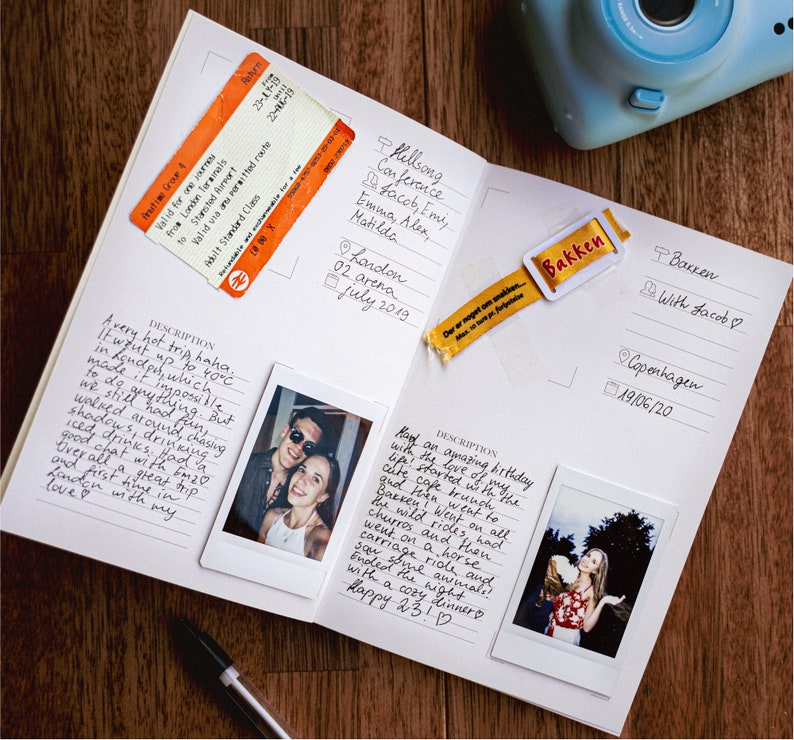 Return
From
Until
23-JLY-19
22-AUG-19
Anytime Group 4
Valid for one journey
from London Terminals
to Stansted Airport
Valid via any permitted route
Adult Standard Class
Refundable and exchangeable for a fee
£0.00 X
Hillsong
Conference
Jacob, Emi,
Emma, Alex,
Matilda
London
02 arena
july 2019
DESCRIPTION
A very hot trip, haha.
It went up to 40°C
in London which
made it impossible
to do anything. But
we still had fun,
walked around, chasing
shadows, drinking
iced drinks. Had a
good chat with bmz♡
Overall a great trip
and first time in
London with my
love♡
Bakken
Der er noget om snakken...
Max. 10 ture pr. forlystelse
Bakken
With Jacob♡
Copenhagen
19/06/20
DESCRIPTION
Had an amazing birthday
with the love of my
life! Started with the
cute cafe brunch
and then went to
Bakken! Went on all
the wild rides, had
churros and then
went on a horse
carriage ride and
saw some animals!
Ended the night
with a cozy dinner♡
Happy 23! ♡